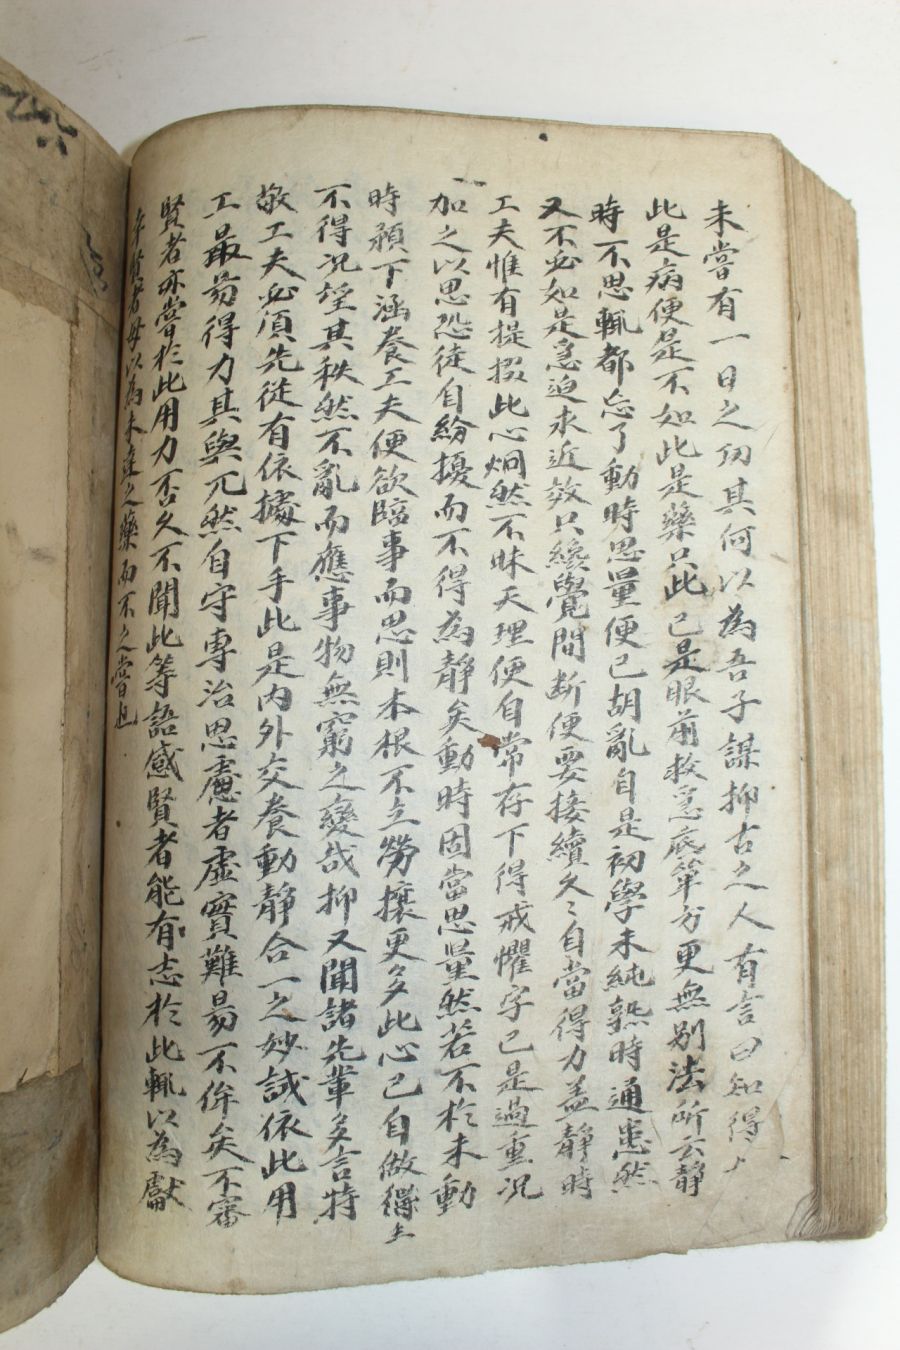 未嘗有一日之功其何以為吾子謀抑古之人有言曰知得
此是病便是不如此是藥只此已是眼前救急底單方更無別法所云靜
時不思輒都忘了動時思量便已胡亂自是初學未純熟時通患然
又不必如是急迫求近效只纔覺間斷便要接續久〻自當得力盖靜時
工夫惟有提掇此心炯然不昧天理便自常存下得戒懼字已是過重况
加之以思恐徒自紛擾而不得為靜矣動時固當思量然若不於未動
時預下涵養工夫便欲臨事而思則本根不立勞攘更多此心已自做得主
不得况望其秩然不亂而應事物無窮之變哉抑又聞諸先輩多言持
敬工夫必須先從有依據下手此是內外交養動靜合一之妙誠依此用
工最易得力其與兀然自守專治思慮者虛實難易不侔矣不審
賢者亦嘗於此用力否久不聞此等語感賢者能有志於此輒以為獻
幸賢者毋以為未達之藥而不之嘗也
六